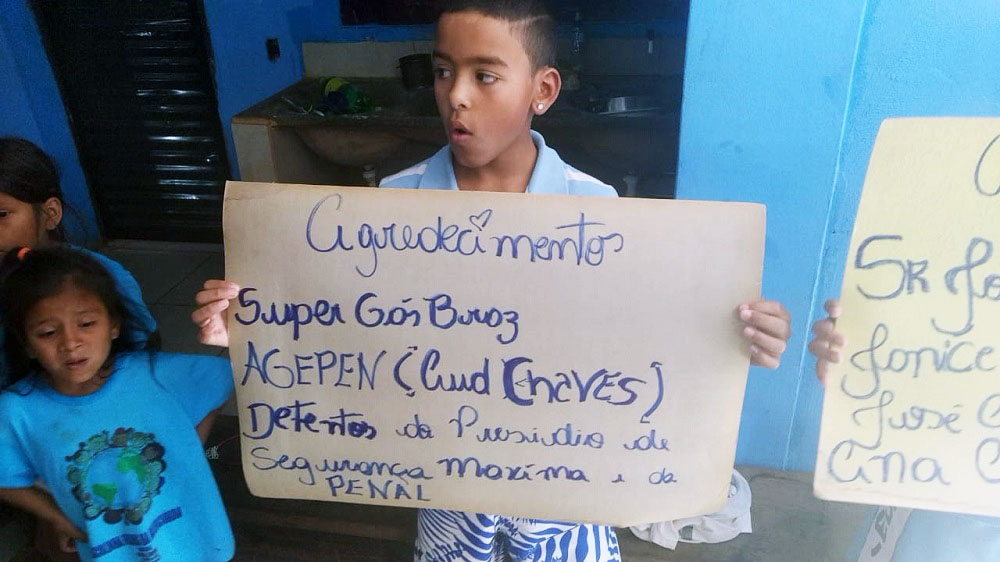 Agredecimentos
Super Gás Braz
AGEPEN (Aud Chaves)
Detentos do Presidio de
Segurança Maxima e da
PENAL
SR Jo
Jonice
José
Ana C